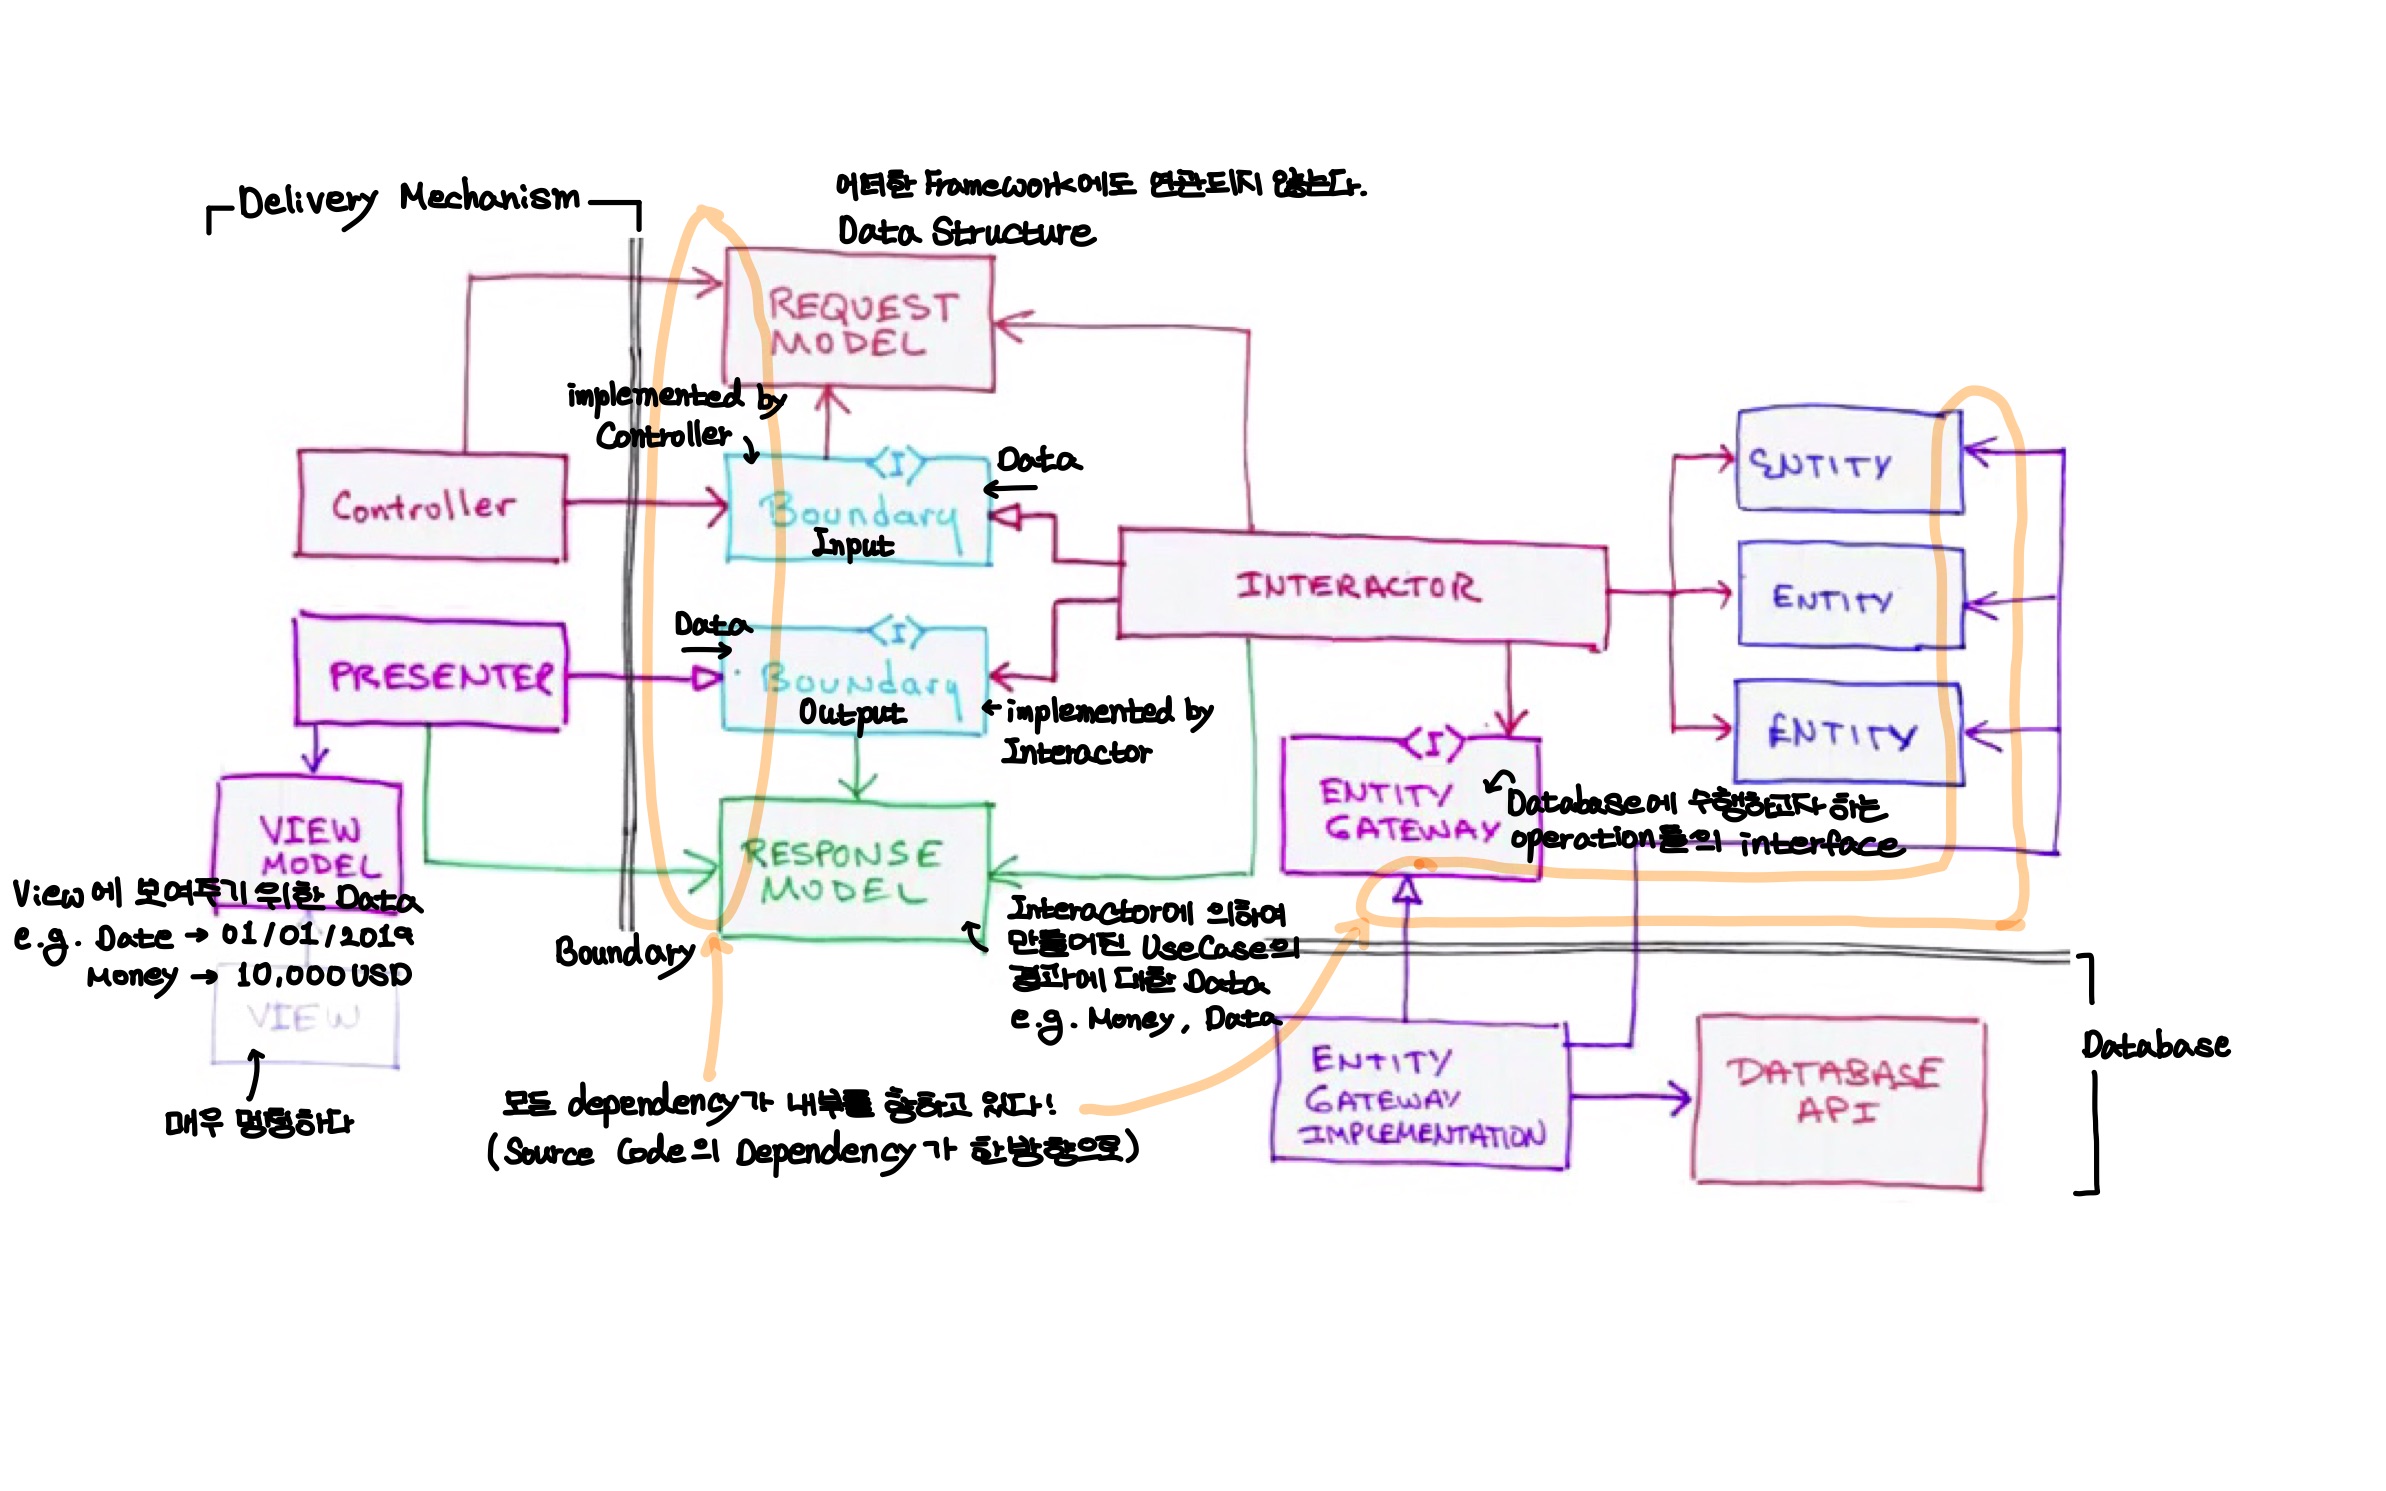 Delivery Mechanism
어떠한 Framework에도 연관되지 않는다.
Data Structure
REQUEST
MODEL
implemented by
Controller
Controller
<I>
Boundary
Input
Data
INTERACTOR
ENTITY
ENTITY
ENTITY
PRESENTER
Data
<I>
Boundary
Output
implemented by
Interactor
<I>
ENTITY
GATEWAY
Database에 수행하고자 하는
operation들의 interface
VIEW
MODEL
View에 보여주기 위한 Data
e.g. Date → 01/01/2019
Money → 10,000 USD
VIEW
매우 멍청하다
RESPONSE
MODEL
Boundary
Interactor에 의하여
만들어진 UseCase의
결과에 대한 Data
e.g. Money, Data
모든 dependency가 내부를 향하고 있다!
(Source Code의 Dependency가 한방향으로)
ENTITY
GATEWAY
IMPLEMENTATION
DATABASE
API
Database